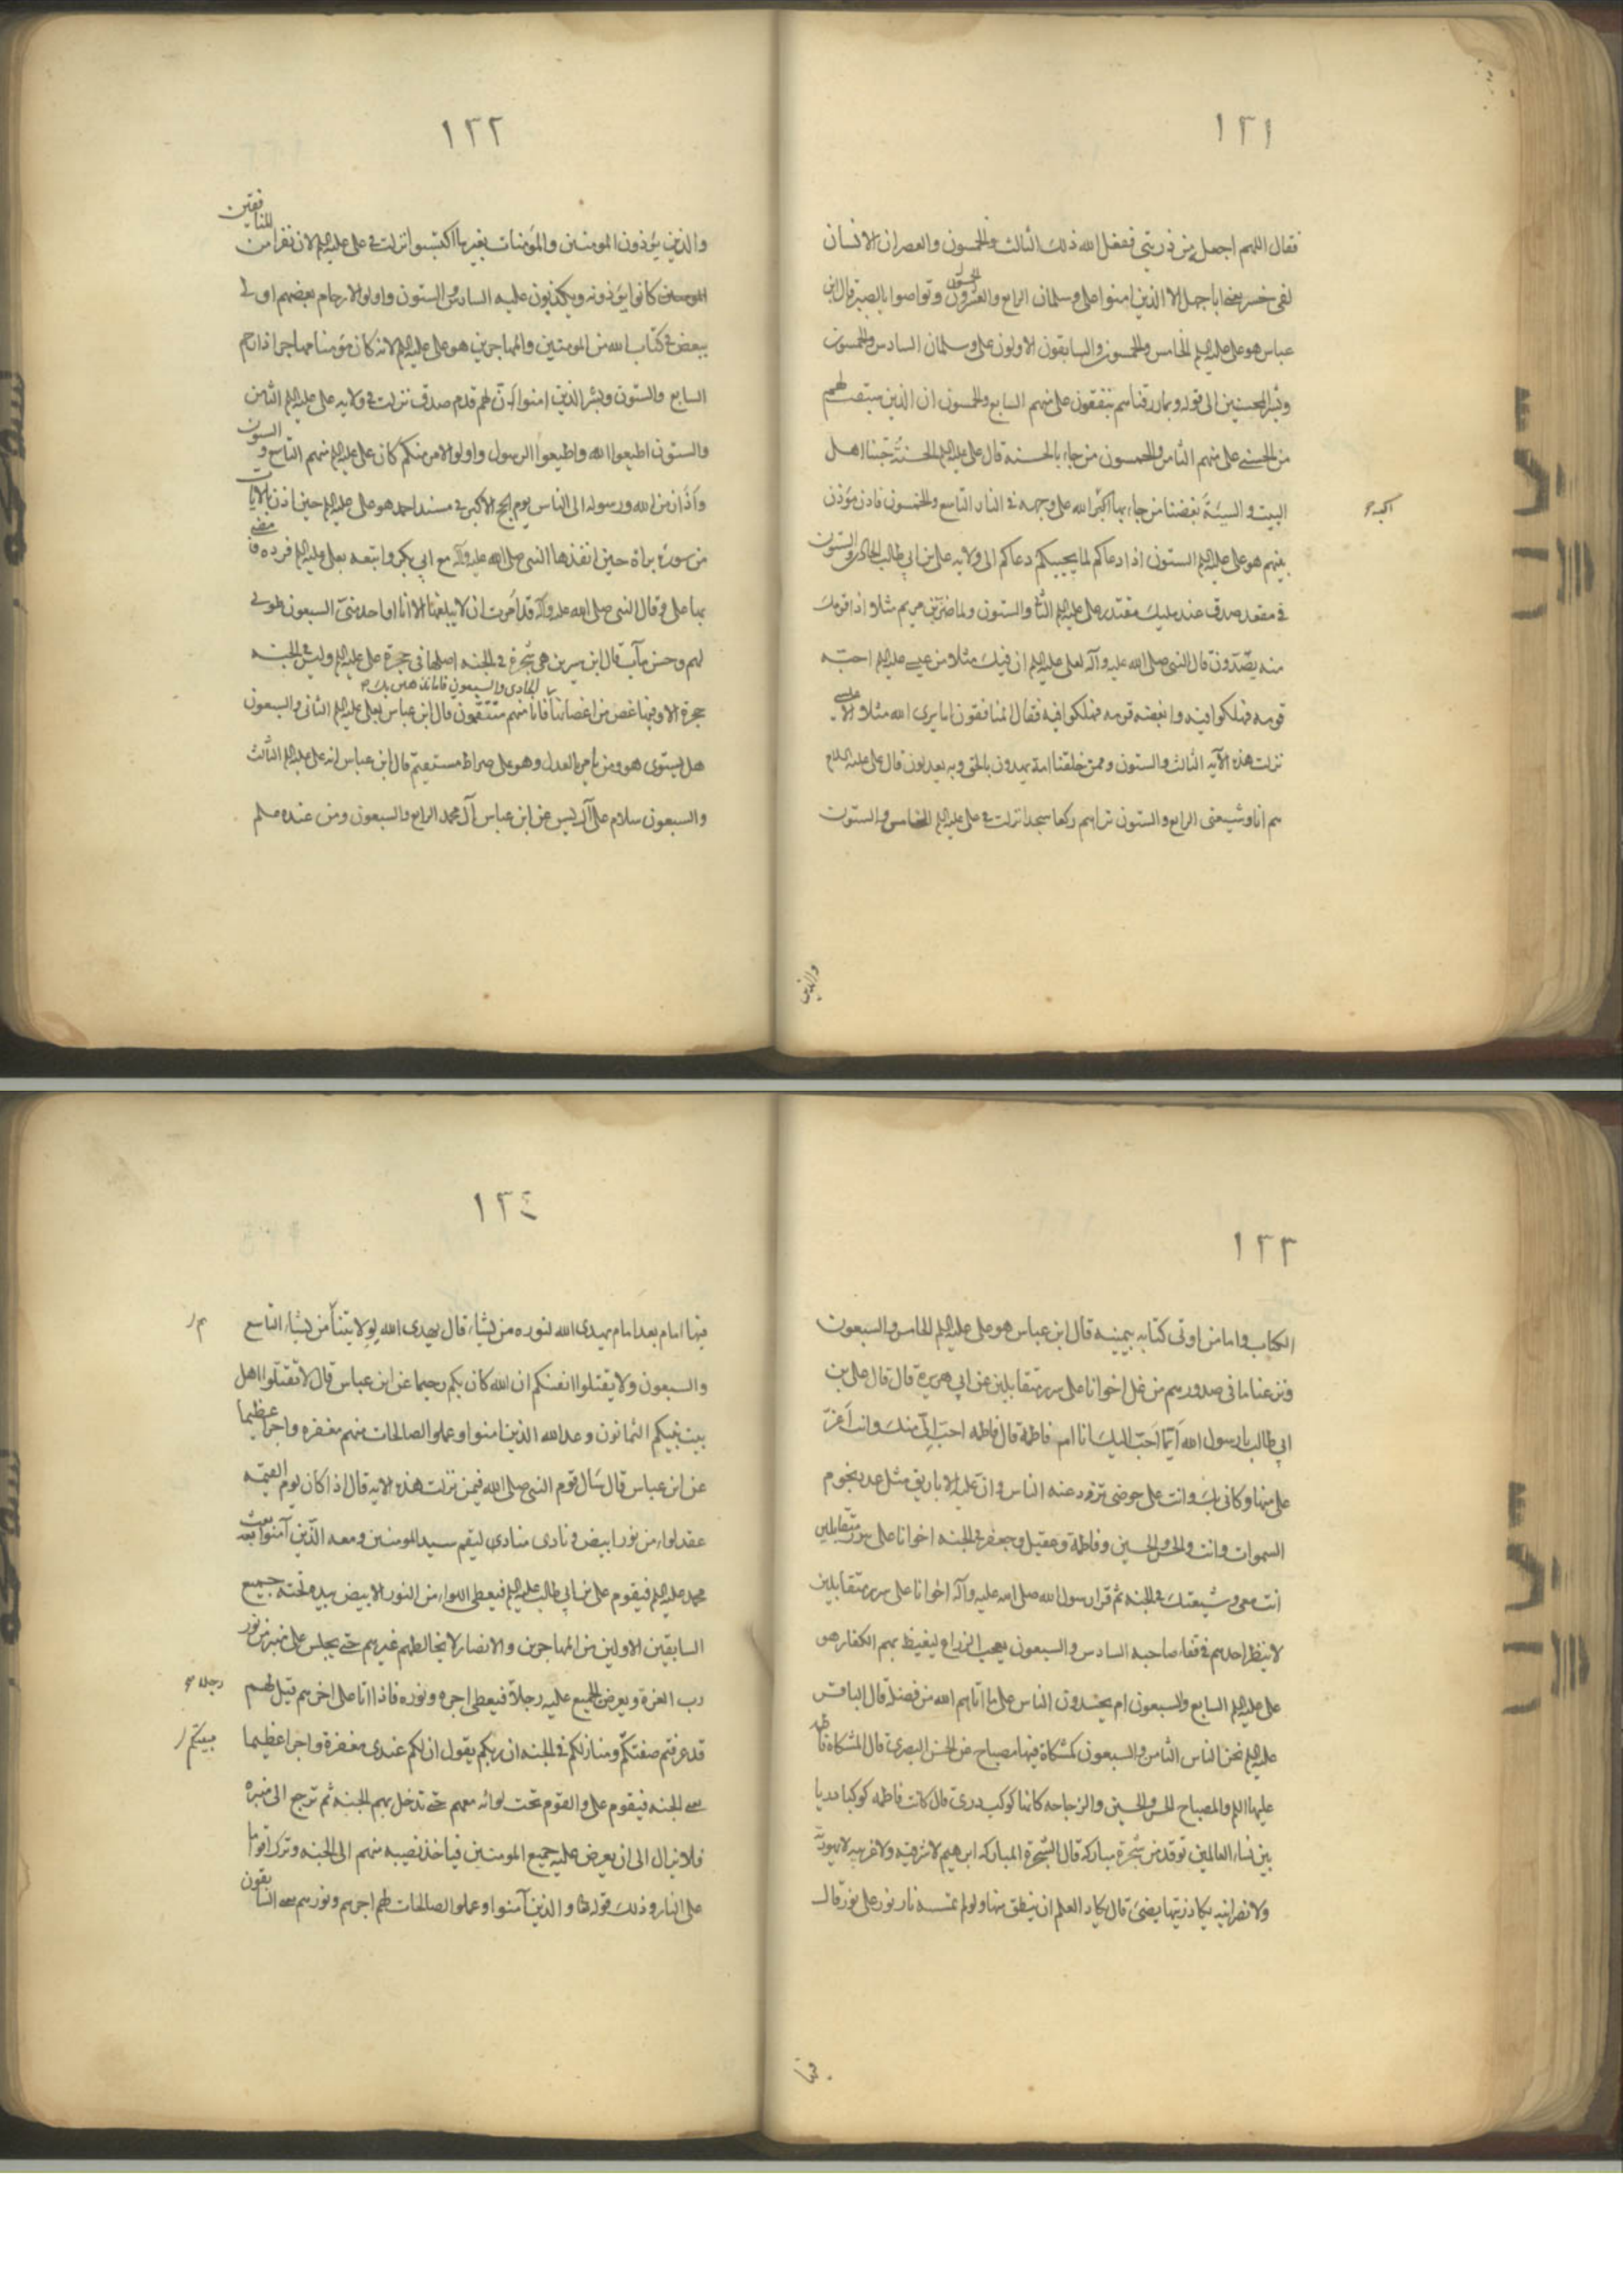 ١٣١
فقال اللهم اجعل من ذريتي ففعل الله ذلك الثالث والخمسون والعصر ان الانسان
لفى خسر يعني ابا جهل الا الذين امنوا علي وسلمان الرابع والخمسون وتواصوا بالصبر قال ابن
عباس هو علي عليه السلم الخامس والخمسون والسابقون الاولون علي وسلمان السادس والخمسون
وبشر المحسنين الى قوله ومما رزقناهم ينفقون علي منهم السابع والخمسون ان الذين سبقت لهم
من الحسنى علي منهم الثامن والخمسون من جاء بالحسنة قال علي عليه السلم الحسنة حبنا اهل
البيت والسيئة بغضنا من جاء بها اكبه الله على وجهه في النار التاسع والخمسون فاذن مؤذن
اكبه
بينهم هو علي عليه السلم الستون اذا دعاكم لما يحييكم دعاكم الى ولاية علي بن ابي طالب الحادي والستون
في مقعد صدق عند مليك مقتدر علي عليه السلم الثاني والستون ولما ضرب ابن مريم مثلا اذا قومك
منه يصدون قال النبي صلى الله عليه وآله لعلي عليه السلم ان فيك مثلا من عيسى عليه السلم احبه
قومه فهلكوا فيه وابغضه قومه فهلكوا فيه فقال المنافقون اما يرى الله مثلا الا عيسى
نزلت هذه الآية الثالث والستون وممن خلقنا امة يهدون بالحق وبه يعدلون قال علي عليه السلام
هم انا وشيعتي الرابع والستون تراهم ركعا سجدا نزلت في علي عليه السلم الخامس والستون
والذين
١٣٢
والذين يؤذون المومنين والمؤمنات بغير ما اكتسبوا نزلت في علي عليه السلم لان نفرا من المنافقين
كانوا يؤذونه ويكذبون عليه السادس والستون واولوا الارحام بعضهم اولى
ببعض في كتاب الله من المومنين والمهاجرين هو علي عليه السلم لانه كان مؤمنا مهاجرا ذا رحم
السابع والستون وبشر الذين امنوا ان لهم قدم صدق نزلت في ولاية علي عليه السلم الثامن
والستون اطيعوا الله واطيعوا الرسول واولوا الامر منكم كان علي عليه السلم منهم التاسع والستون
واذان من الله ورسوله الى الناس يوم الحج الاكبر في مسند احمد هو علي عليه السلم حين اذن بالايات
من سورة براة حين انفذها النبي صلى الله عليه وآله مع ابي بكر واتبعه بعلي عليه السلم فرده فمضى
بها علي وقال النبي صلى الله عليه وآله قد امرت ان لا يبلغها الا انا او احد مني السبعون طوبى
لهم وحسن مآب قال ابن سيرين هي شجرة في الجنة اصلها في حجرة علي عليه السلم وليس في الجنة
حجرة الا وفيها غصن من اغصانها الحادي والسبعون فاما نذهبن بك فانا منهم منتقمون قال ابن عباس بعلي عليه السلم الثاني والسبعون
هل يستوي هو ومن يامر بالعدل وهو على صراط مستقيم قال ابن عباس انه علي عليه السلم الثالث
والسبعون سلام على آل يس عن ابن عباس آل محمد الرابع والسبعون ومن عنده علم
١٣٣
الكتاب واما من اوتى كتابه بيمينه قال ابن عباس هو علي عليه السلم الخامس والسبعون
ونزعنا ما في صدورهم من غل اخوانا على سرر متقابلين عن ابي هريرة قال قال علي بن
ابي طالب يا رسول الله ايما احب اليك انا ام فاطمة قال فاطمة احب الي منك وانت اعز
علي منها وكاني بك وانت على حوضي تزود عنه الناس وان عليه الاباريق مثل عدد نجوم
السموات وانت والحسن والحسين وفاطمة وعقيل وجعفر في الجنة اخوانا على سرر متقابلين
انت معي وشيعتك في الجنة ثم قرا رسول الله صلى الله عليه وآله اخوانا على سرر متقابلين
لا ينظر احدهم في قفاء صاحبه السادس والسبعون يعجب الزراع ليغيظ بهم الكفار هو
علي عليه السلم السابع والسبعون ام يحسدون الناس على ما اتاهم الله من فضله قال الباقر
عليه السلم نحن الناس الثامن والسبعون كمشكاة فيها مصباح عن الحسن البصري قال المشكاة فاطمة
عليها السلم والمصباح الحسن والحسين والزجاجة كانها كوكب دري قال كانت فاطمه كوكبا دريا
بين نساء العالمين توقد من شجرة مباركة قال الشجرة المباركه ابرهيم لا شرقية ولا غربية لا يهودية
ولا نصرانية يكاد زيتها يضئ قال يكاد العلم ان ينطق منها ولو لم تمسسه نار نور على نور قال
فيها
١٣٤
فيها امام بعد امام يهدي الله لنوره من يشاء قال يهدي الله لولايتنا من يشاء التاسع
والسبعون ولا تقتلوا انفسكم ان الله كان بكم رحيما عن ابن عباس قال لا تقتلوا اهل
بيت نبيكم الثمانون وعد الله الذين امنوا وعملوا الصالحات منهم مغفرة واجرا عظيما
عن ابن عباس قال سال قوم النبي صلى الله فيمن نزلت هذه الاية قال اذا كان يوم القيمة
عقد لواء من نور ابيض ونادى منادى ليقم سيد المومنين ومعه الذين آمنوا بعد بعث
محمد عليه السلم فيقوم علي بن ابي طالب عليه السلم فيعطى اللواء من النور الابيض بيده تحته جميع
السابقين الاولين من المهاجرين والانصار لا يخالطهم غيرهم حتى يجلس على منبر من نور
رب العزة ويعرض الجميع عليه رجلا فيعطى اجره ونوره فاذا اتى على اخرهم قيل لهم
رجلا
قد عرفتم صفتكم ومنازلكم في الجنة ان ربكم يقول ان لكم عندي مغفرة واجرا عظيما
يعني الجنة فيقوم علي والقوم تحت لوائه معهم حتى تدخل بهم الجنة ثم ترجع الى منبره
فلا يزال الى ان يعرض عليه جميع المومنين فياخذ نصيبه منهم الى الجنة وترك اقواما
على النار وذلك قوله تعالى والذين آمنوا وعملوا الصالحات لهم اجرهم ونورهم يعني السابقون